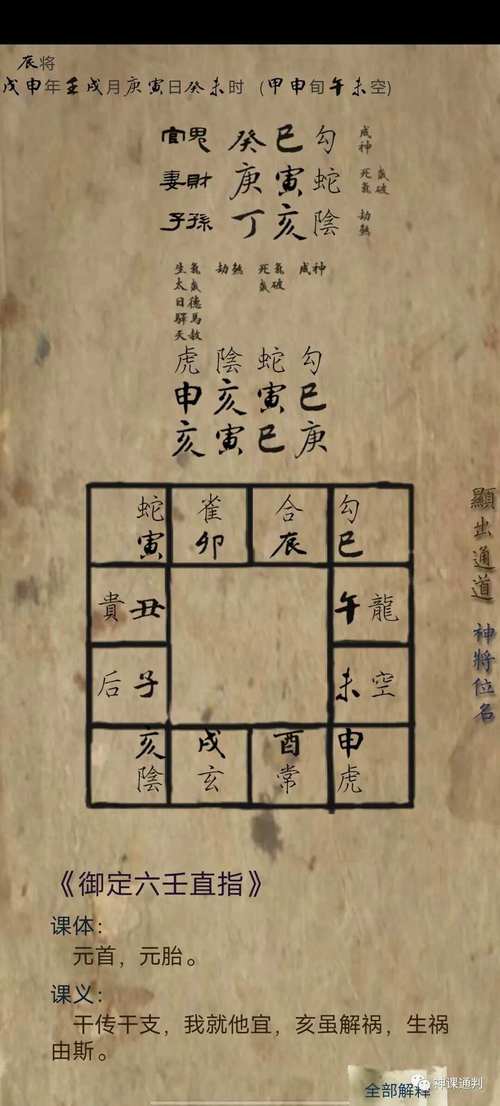 辰将
戊申年壬戌月庚寅日癸未时 (甲申旬午未空)
官鬼 癸巳勾 成神
妻財 庚寅蛇 死氣 歲破
子孫 丁亥陰 劫煞
生氣 劫煞 死氣 成神
太歲 歲破
日德
驛馬
天赦
虎陰蛇勾
申亥寅巳
亥寅巳庚
蛇雀合勾
寅卯辰巳
貴丑 午龍
后子 未空
亥戌酉申
陰玄常虎
顯出通道 神將位名
《御定六壬直指》
课体：
元首，元胎。
课义：
干传干支，我就他宜，亥虽解祸，生祸
由斯。
全部解释
神课通判